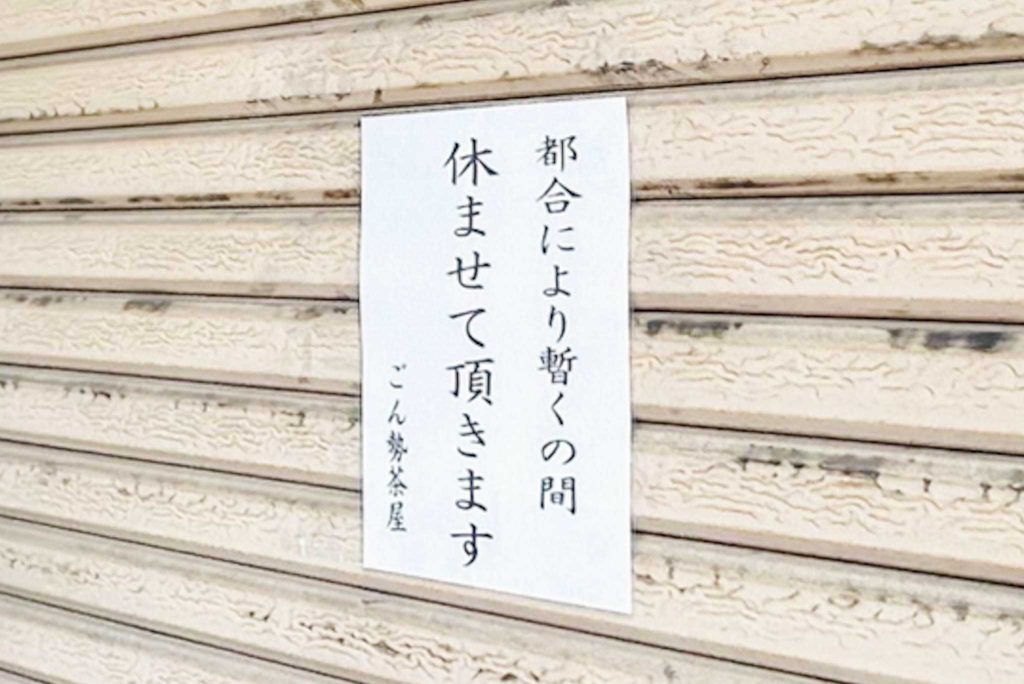 都合により暫くの間
休ませて頂きます
ごん勢茶屋